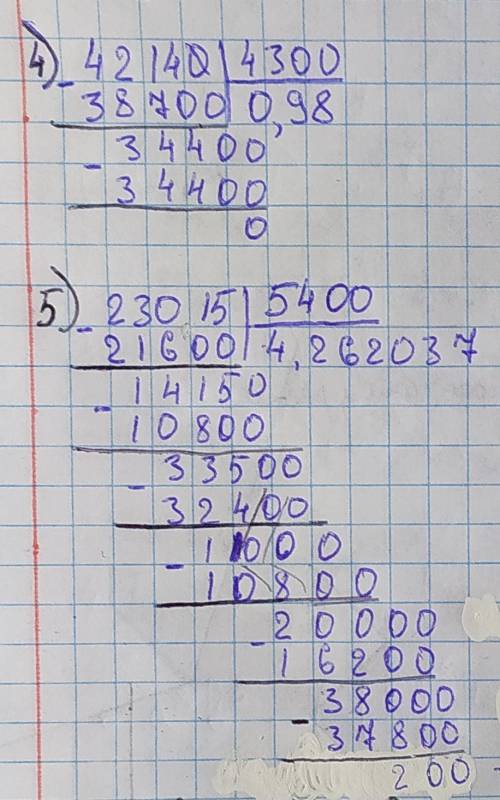 4) - 42140 | 4300
38700 | 0,98
- 34400
34400
0
5) - 23015 | 5400
21600 | 4,262037
- 14150
10800
- 33500
32400
- 11000
10800
- 20000
16200
- 38000
37800
200